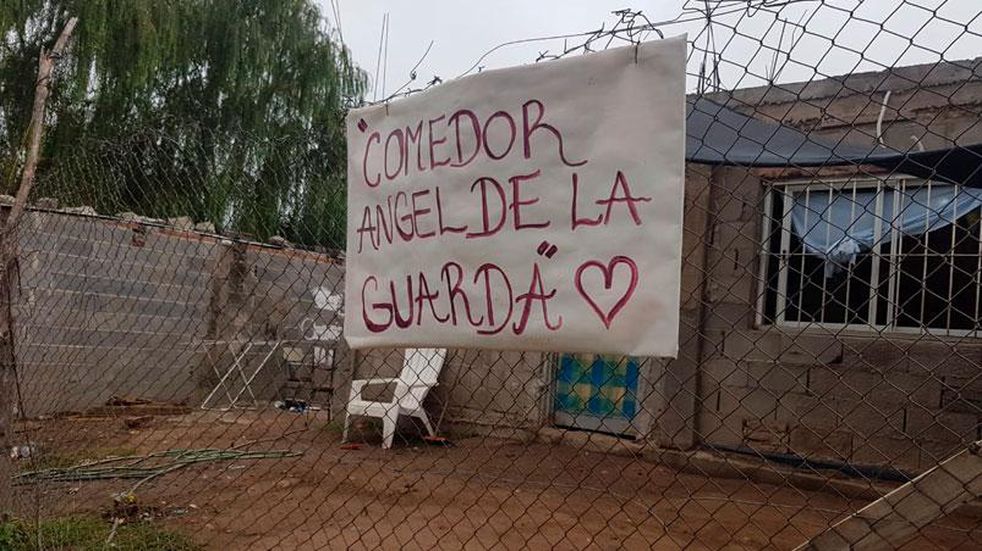 "COMEDOR
ANGEL DE LA
GUARDA" ♡